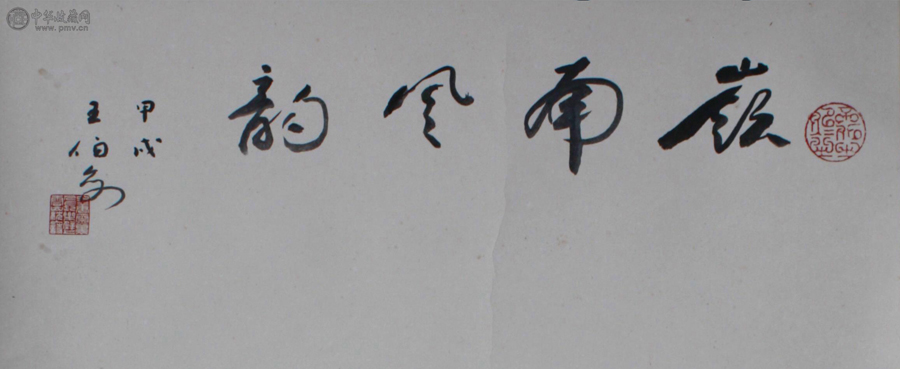 嶺南風韵
甲戌
王伯敏
中华收藏网
www.pmv.cn